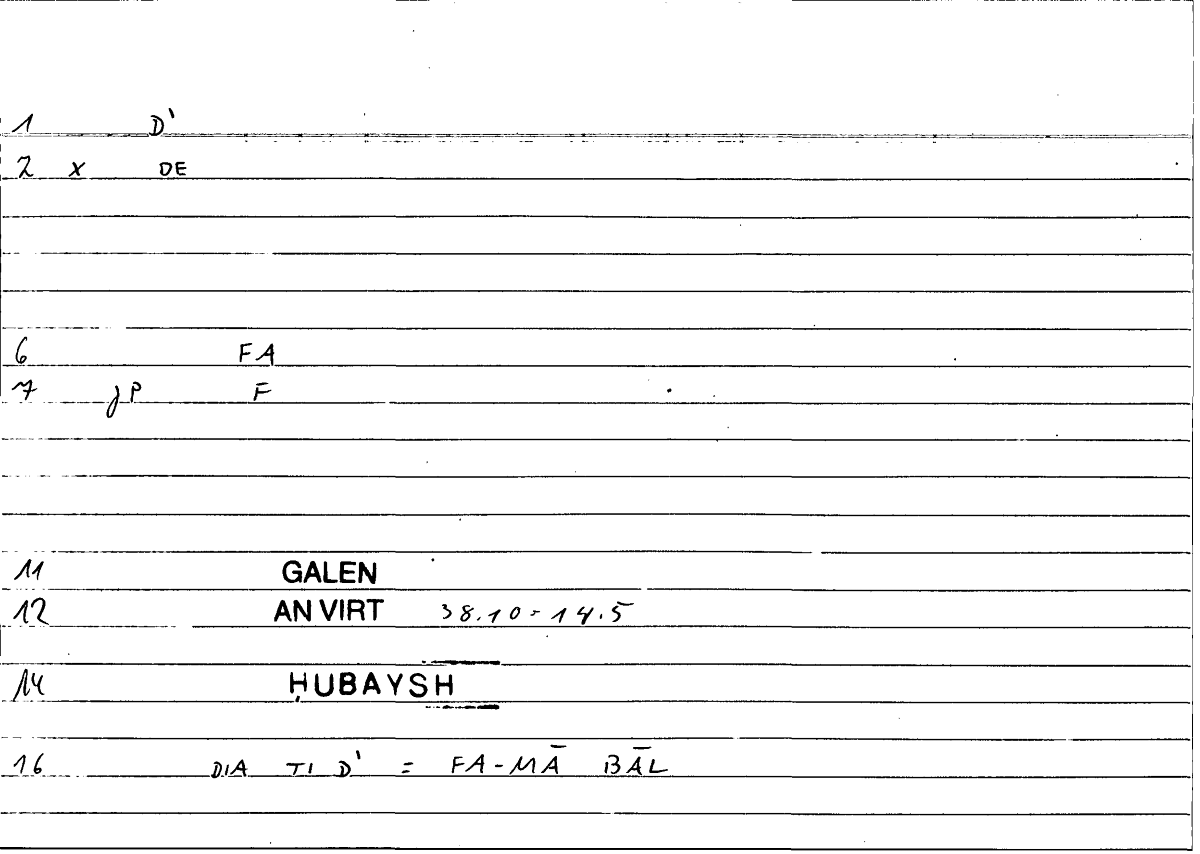 1 D'
2 x DE
6 FA
7 jP F
11 GALEN
12 AN VIRT 38.10 = 14.5
14 ḤUBAYSH
16 DIA TI D' = FA-MĀ BĀL